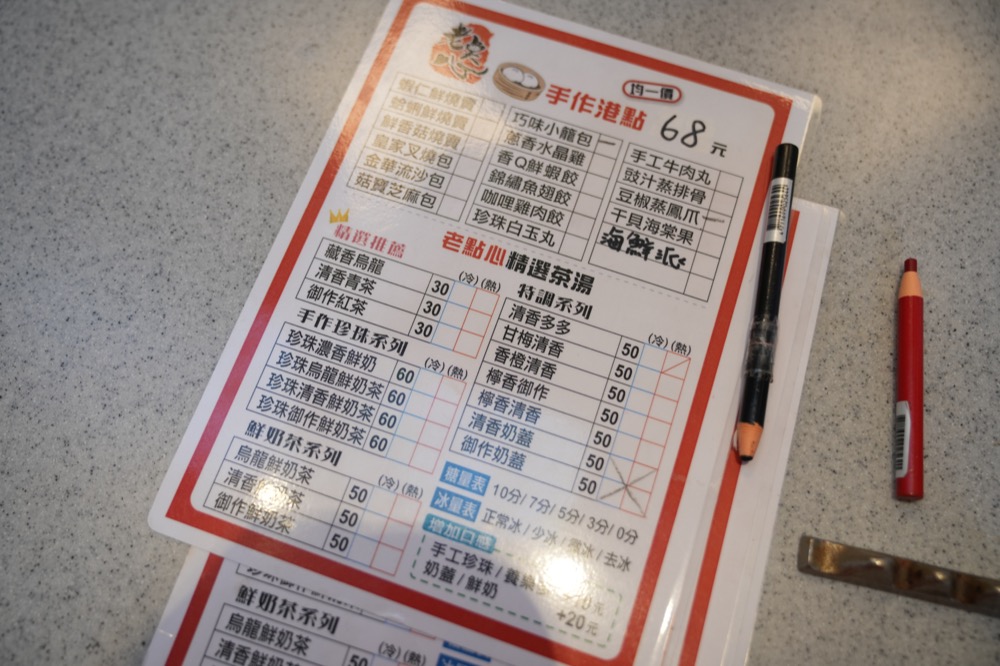 老點心
均一價
手作港點 68 元
蝦仁鮮燒賣
蛤蜊鮮燒賣
鮮香菇燒賣
皇家叉燒包
金華流沙包
菇寶芝麻包
巧味小籠包
蔥香水晶雞
香Q鮮蝦餃
錦繡魚翅餃
咖哩雞肉餃
珍珠白玉丸
手工牛肉丸
豉汁蒸排骨
豆椒蒸鳳爪
干貝海棠果
海鮮派
老點心精選茶湯
精選推薦
(冷)(熱)
藏香烏龍 30
清香青茶 30
御作紅茶 30
手作珍珠系列
(冷)(熱)
珍珠濃香鮮奶 60
珍珠烏龍鮮奶茶 60
珍珠清香鮮奶茶 60
珍珠御作鮮奶茶 60
鮮奶茶系列
(冷)(熱)
烏龍鮮奶茶 50
清香鮮奶茶 50
御作鮮奶茶 50
特調系列
(冷)(熱)
清香多多 50
甘梅清香 50
香橙清香 50
檸香御作 50
檸香清香 50
清香奶蓋 50
御作奶蓋 50
糖量表 10分/7分/5分/3分/0分
冰量表 正常冰/少冰/微冰/去冰
增加口感
手工珍珠/
奶蓋/鮮奶 +20元
鮮奶茶系列
(冷)(熱)
烏龍鮮奶茶 50
清香鮮奶茶